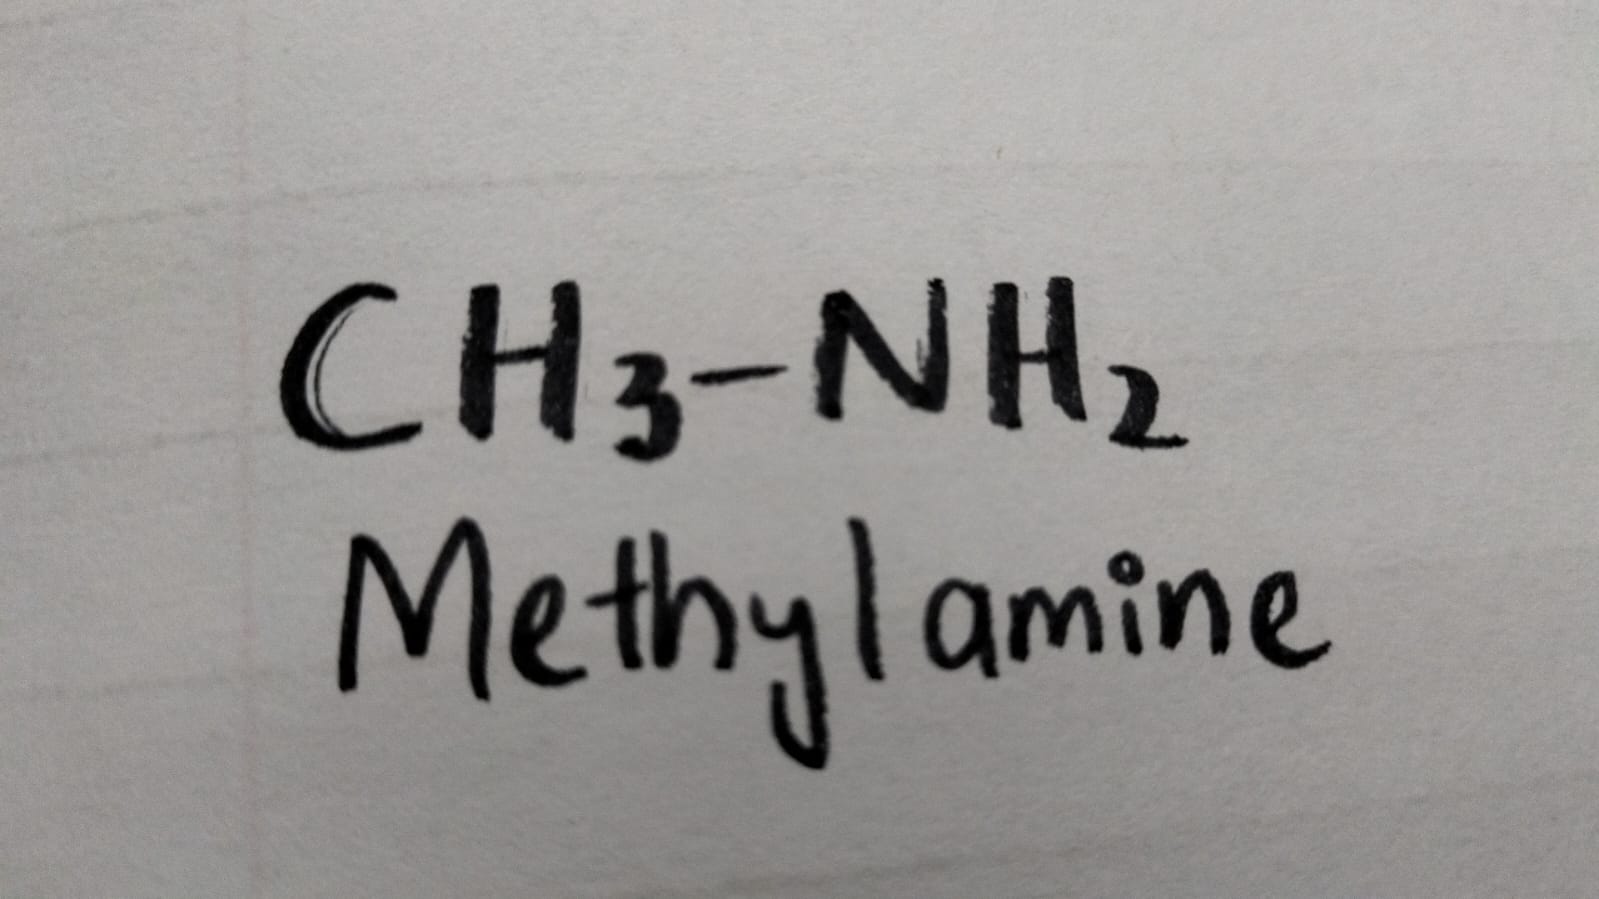 CH₃-NH₂
Methylamine